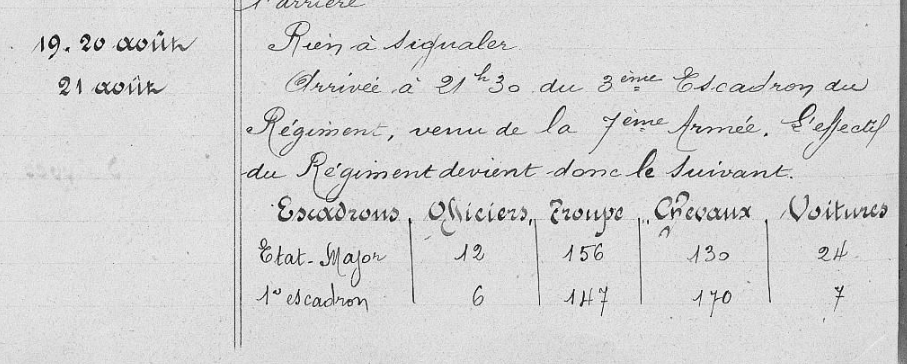 l'arrière
19. 20 août Rien à signaler
21 août Arrivée à 21h30 du 3ème Escadron du
Régiment, venu de la 7ème Armée. L'effectif
du Régiment devient donc le suivant.
Escadrons Officiers Troupe Chevaux Voitures
Etat-Major 12 156 130 24
1er escadron 6 147 170 7